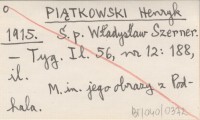 PIĄTKOWSKI Henryk
1915. Ś.p. Władysław Szerner.
— Tyg. Il. 56, nr 12: 188,
il.
M.in. jego obrazy z Pod-
hala.